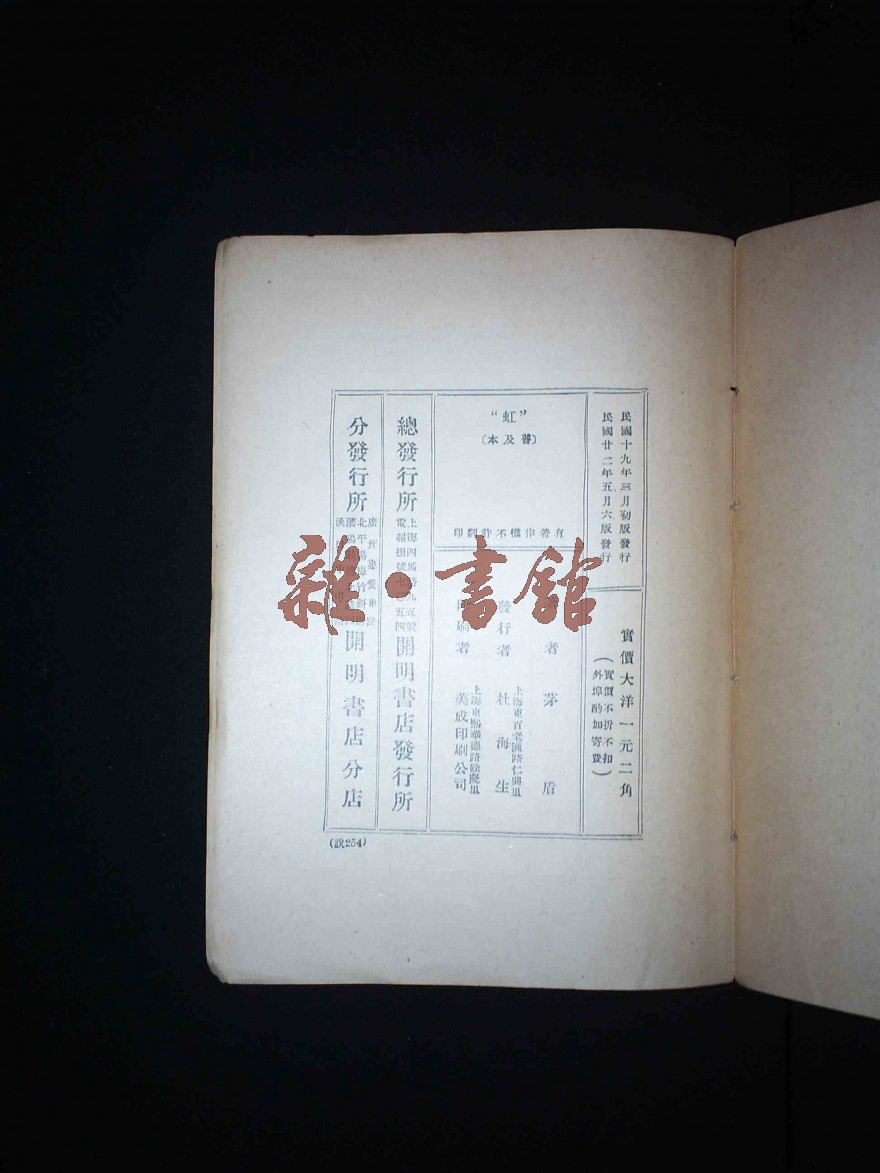 民國十九年三月初版發行
民國廿二年五月六版發行
實價大洋一元二角
(實價不折不扣
外埠酌加寄費)
“虹”
〔普及本〕
有著作權不許翻印
者 茅 盾
發行者 杜海生
上海東百老匯路仁興里
者 美成印刷公司
上海東熙華德路餘慶里
總發行所 開明書店發行所
上海四馬路九五號
電報掛號七〇五四
分發行所 開明書店分店
廣州惠愛東路
(說254)
雜·書館